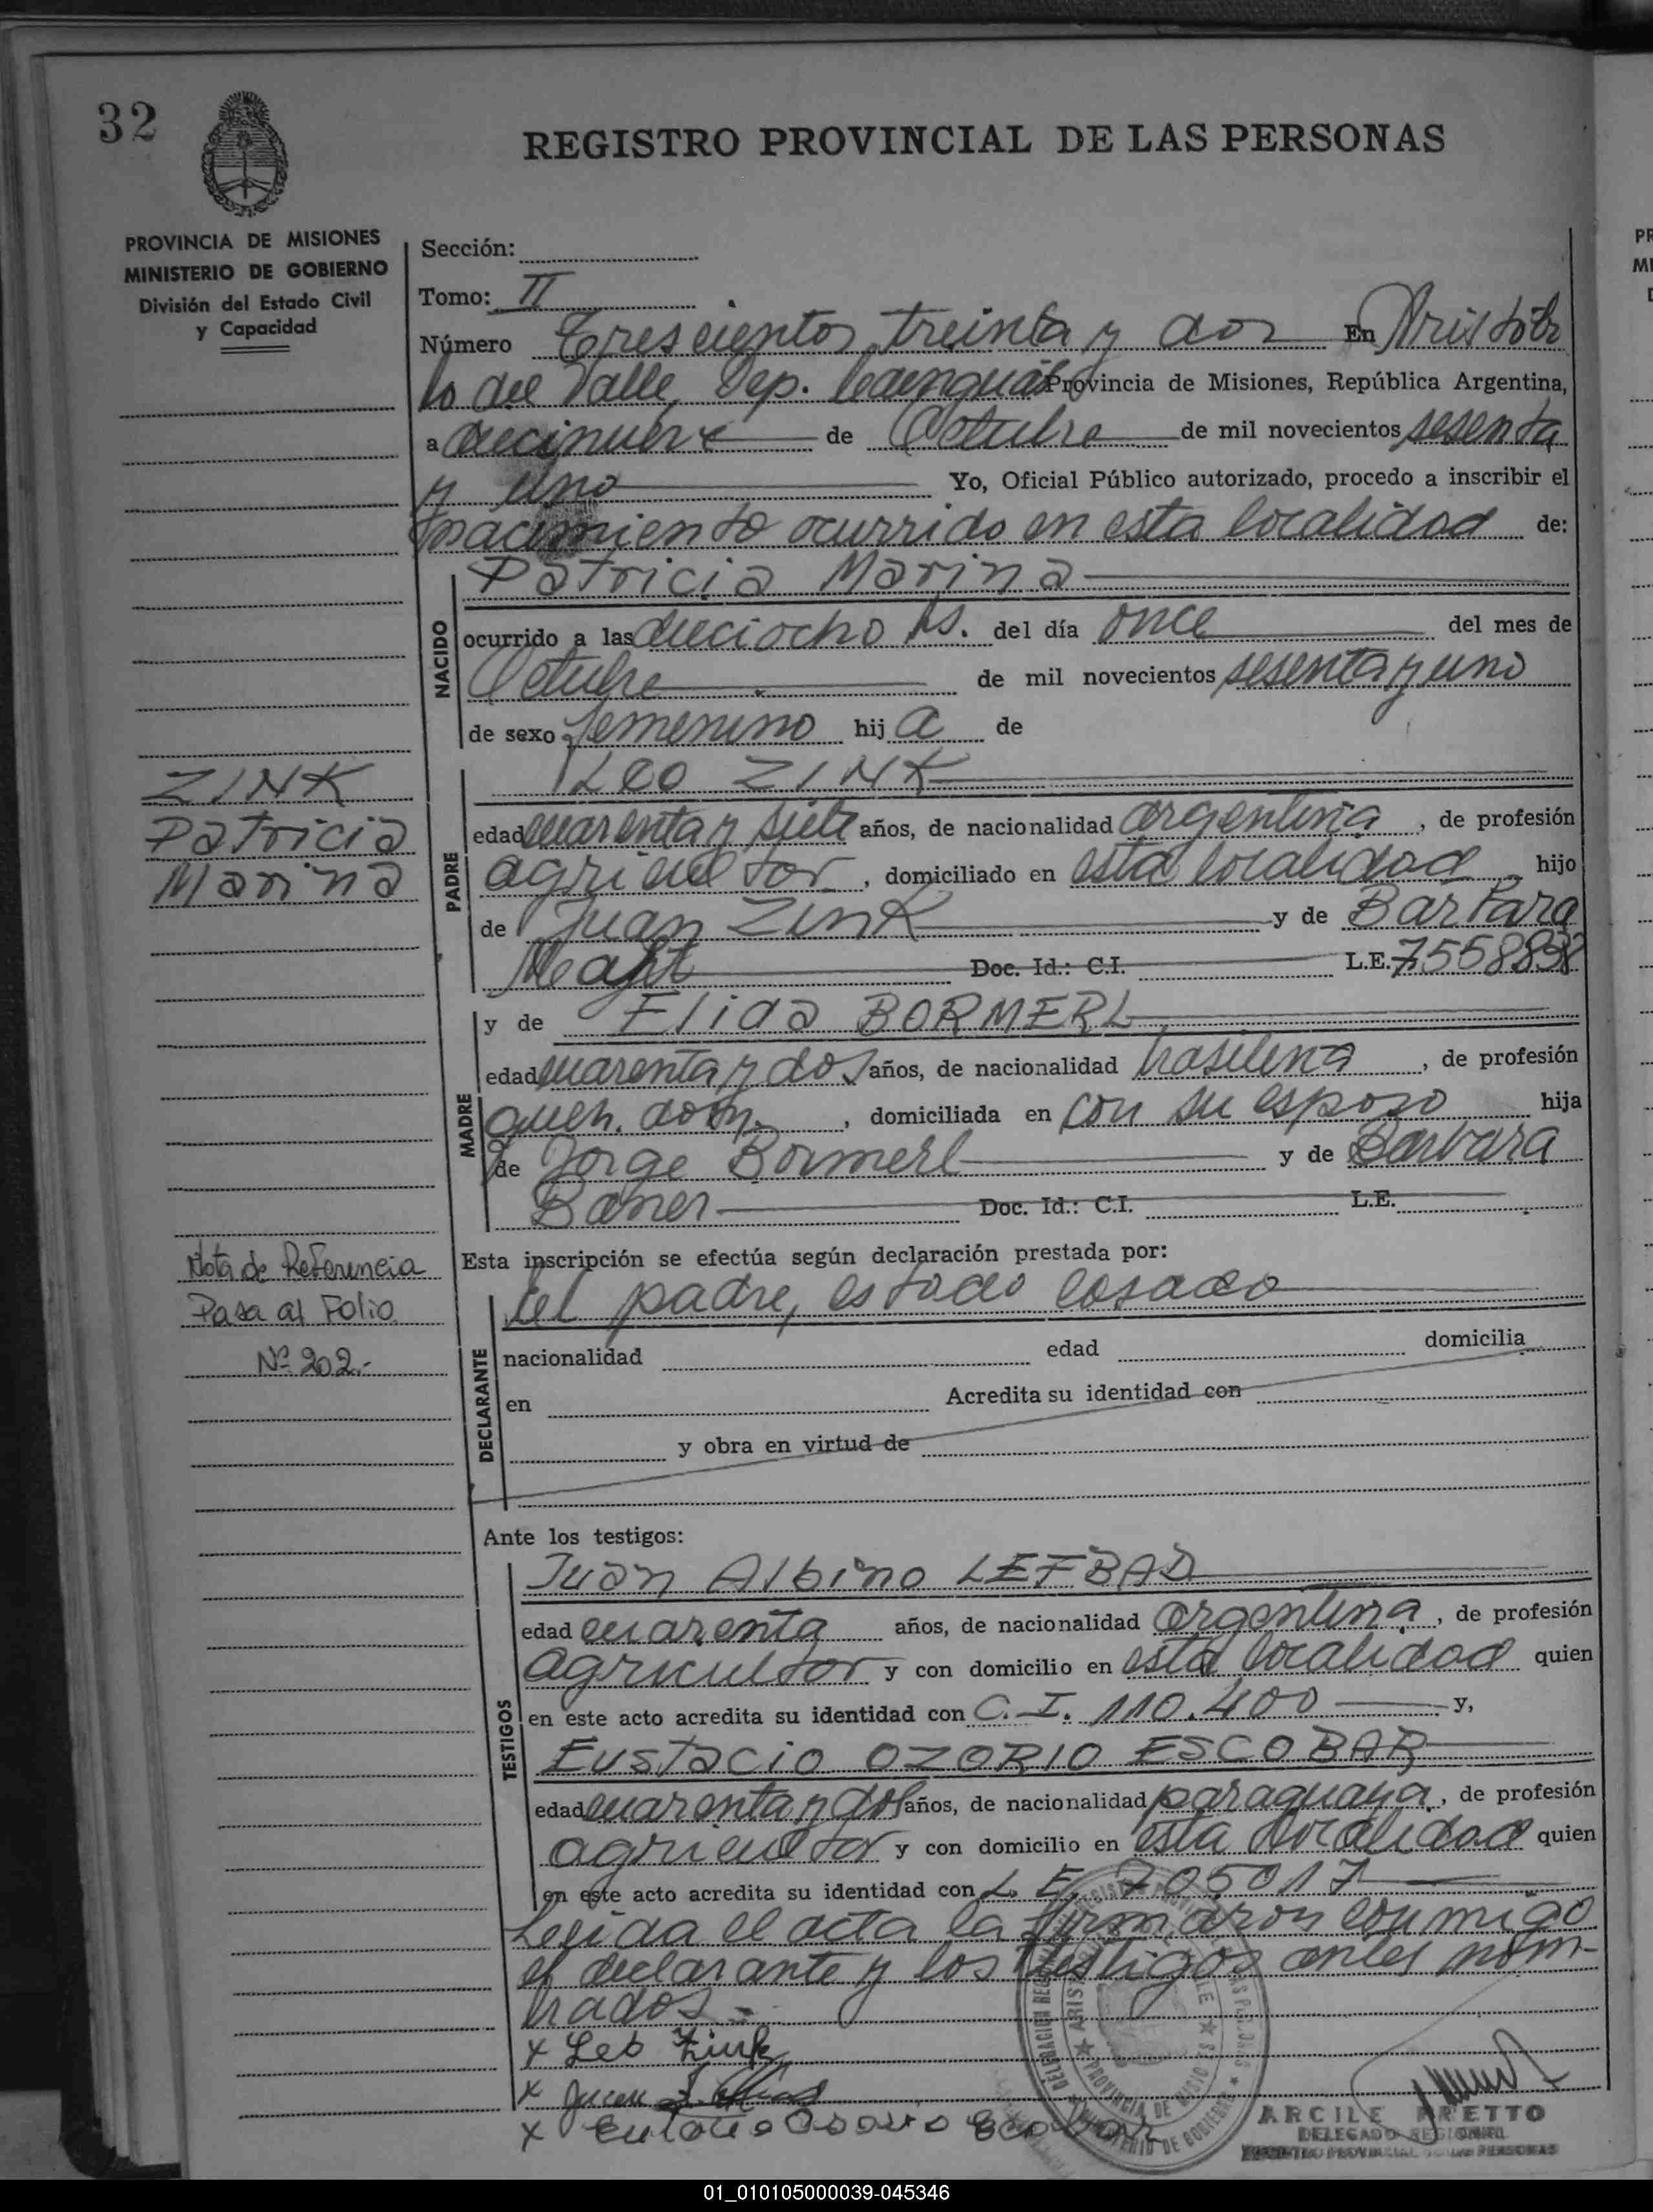 32
REGISTRO PROVINCIAL DE LAS PERSONAS
PROVINCIA DE MISIONES
MINISTERIO DE GOBIERNO
División del Estado Civil
y Capacidad
Sección:
Tomo: II
Número Trescientos treinta y dos En Aristóbu
lo del Valle, Dep. Cainguás Provincia de Misiones, República Argentina,
a diecinueve de Octubre de mil novecientos sesenta
y uno Yo, Oficial Público autorizado, procedo a inscribir el
nacimiento ocurrido en esta localidad de:
NACIDO
Patricia Marina
ocurrido a las dieciocho hs. del día once del mes de
Octubre de mil novecientos sesenta y uno
de sexo femenino hija de
ZINK
Patricia
Marina
PADRE
LEO ZINK
edad cuarenta y siete años, de nacionalidad argentina, de profesión
agricultor, domiciliado en esta localidad hijo
de Juan Zink y de Barbara
Doc. Id.: C.I. L.E. 7558838
MADRE
y de Elida BORMERL
edad cuarenta y dos años, de nacionalidad brasilena, de profesión
queh. dom., domiciliada en con su esposo hija
de Jorge Bormerl y de Barbara
Baner Doc. Id.: C.I. L.E.
Nota de Referencia
Pasa al Folio
Nº 202.-
Esta inscripción se efectúa según declaración prestada por:
DECLARANTE
el padre, estado casado
nacionalidad edad domicilia
en Acredita su identidad con
y obra en virtud de
Ante los testigos:
TESTIGOS
Juan Albino LEFBAD
edad cuarenta años, de nacionalidad argentina, de profesión
agricultor y con domicilio en esta localidad quien
en este acto acredita su identidad con C.I. 110.400 y,
EUSTACIO OZORIO ESCOBAR
edad cuarenta y dos años, de nacionalidad paraguaya, de profesión
agricultor y con domicilio en esta localidad quien
en este acto acredita su identidad con L.E. 705017
Leída el acta la firmaron conmigo
el declarante y los testigos antes nom-
brados.-
x Leo Zink
x Juan
x Eustacio Osorio Escobar
ARCILE PRETTO
DELEGADO REGIONAL
01_010105000039-045346